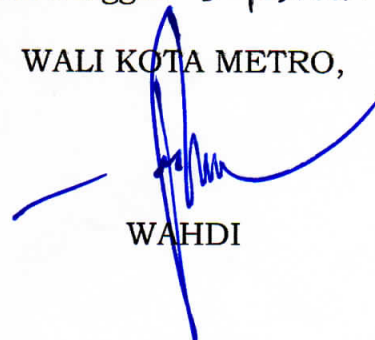 WALI KOTA METRO,
WAHDI